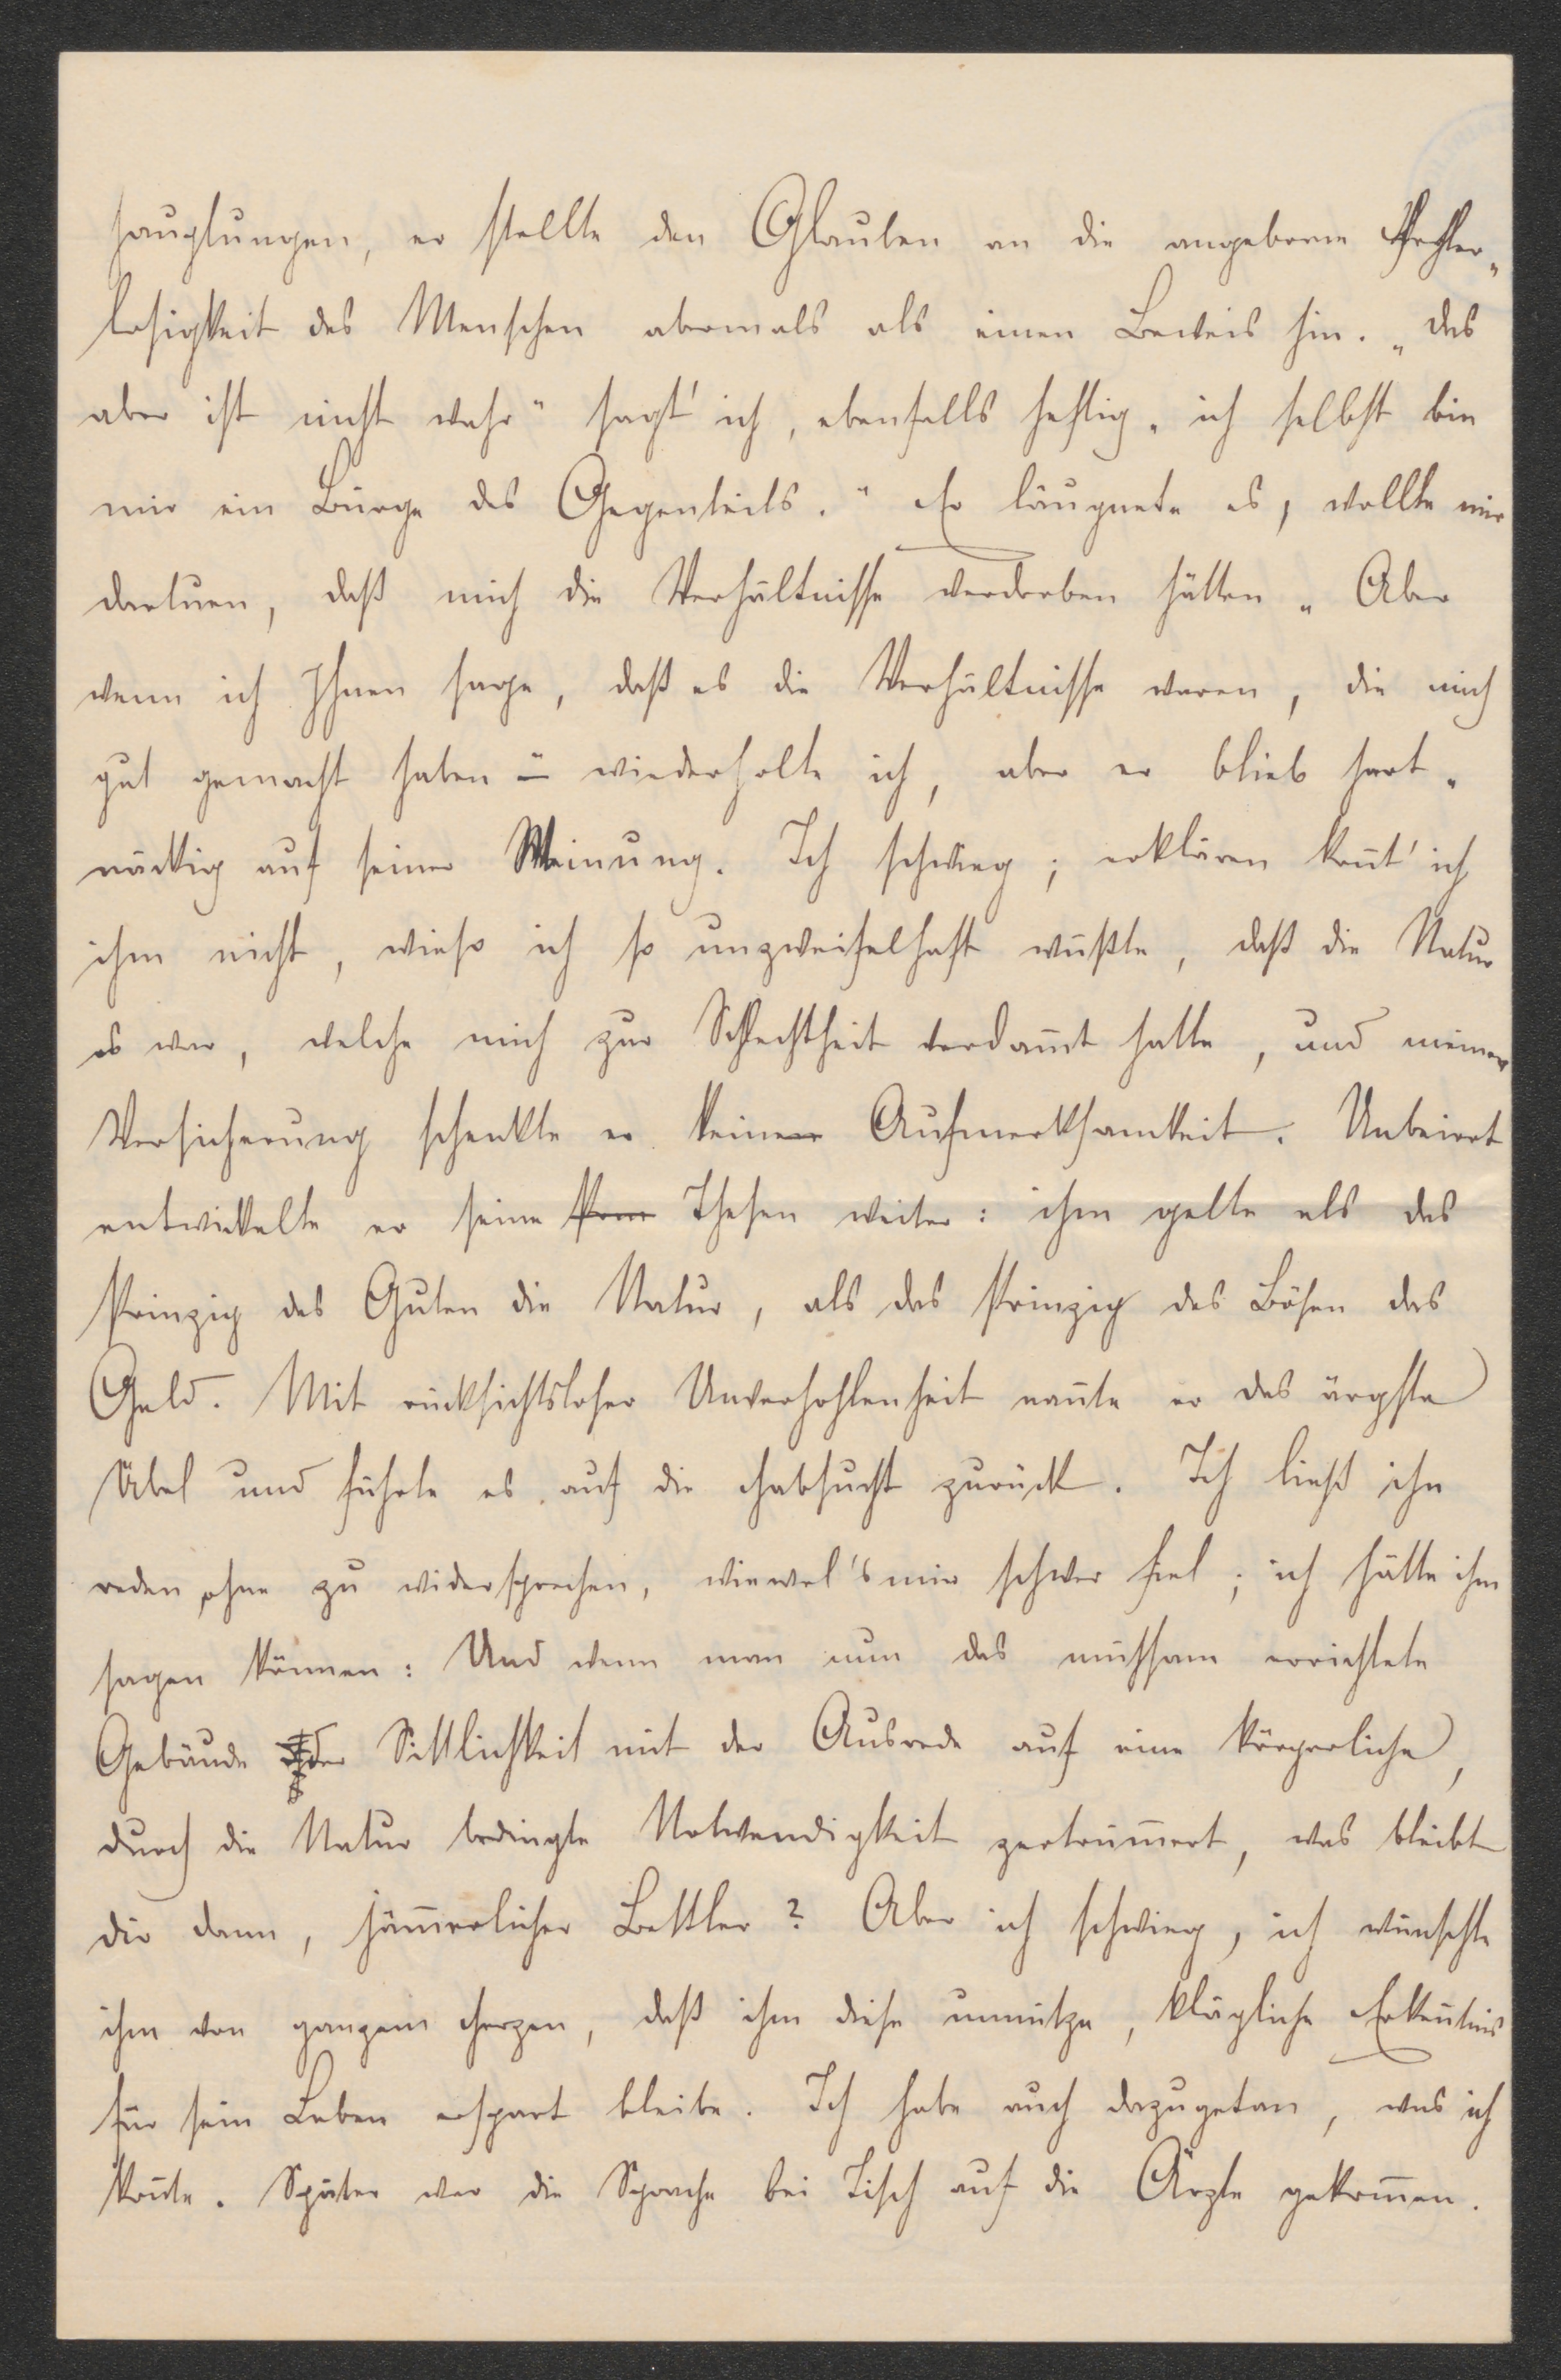 hauptungen, er stellte den Glauben an die angeborne Fehler„
losigkeit des Menschen abermals als einen Beweis hin. „das
aber ist nicht wahr“ sagt' ich, ebenfalls heftig „ ich selbst bin
mir ein Bürge des Gegenteils.“ Er läugnete es, wollte mir
dartuen, daß mich die Verhältnisse verdorben hätten „ Aber
wenn ich Ihnen sage, daß es die Verhältnisse waren, die mich
gut gemacht haben“ – wiederholte ich, aber er blieb hart„
näckig auf seiner Meinung. Ich schwieg; erklären koñt' ich
ihm nicht, wieso ich so unzweifelhaft wußte, daß die Natur
es war, welche mich zur Schlechtheit verdam̄t hatte, und meiner
Versicherung schenkte er keine Aufmerksamkeit. Unbeirrt
entwickelte er seine Thesen weiter: ihm gelte als das
Prinzip des Guten die Natur, als das Prinzip des Bösen das
Geld. Mit rücksichtsloser Unverhohlenheit nañte er das ärgste
Übel und führte es auf die Habsucht zurück. Ich ließ ihn
reden, ohne zu widersprechen, wiewol's mir schwer fiel; ich hätte ihm
sagen können: Und wenn man nun das mühsam errichtete
Gebäude der Sittlichkeit mit der Ausrede auf eine körperliche,
durch die Natur bedingte Notwendigkeit zertrüm̄ert, was bleibt
dir dann, jäm̄erlicher Bettler? Aber ich schwieg, ich wünschte
ihm von ganzem Herzen, daß ihm diese unnütze, klägliche Erkeñtnis
für sein Leben erspart bleibe. Ich habe auch dazugetan, was ich
koñte. Später war die Sprache bei Tisch auf die Ärzte gekom̄en.